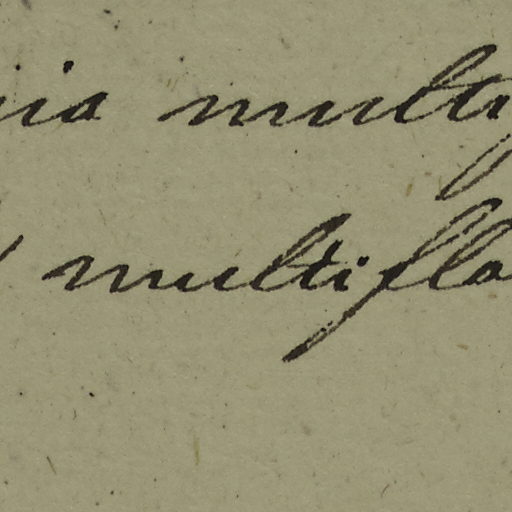 ia multi
multiflo